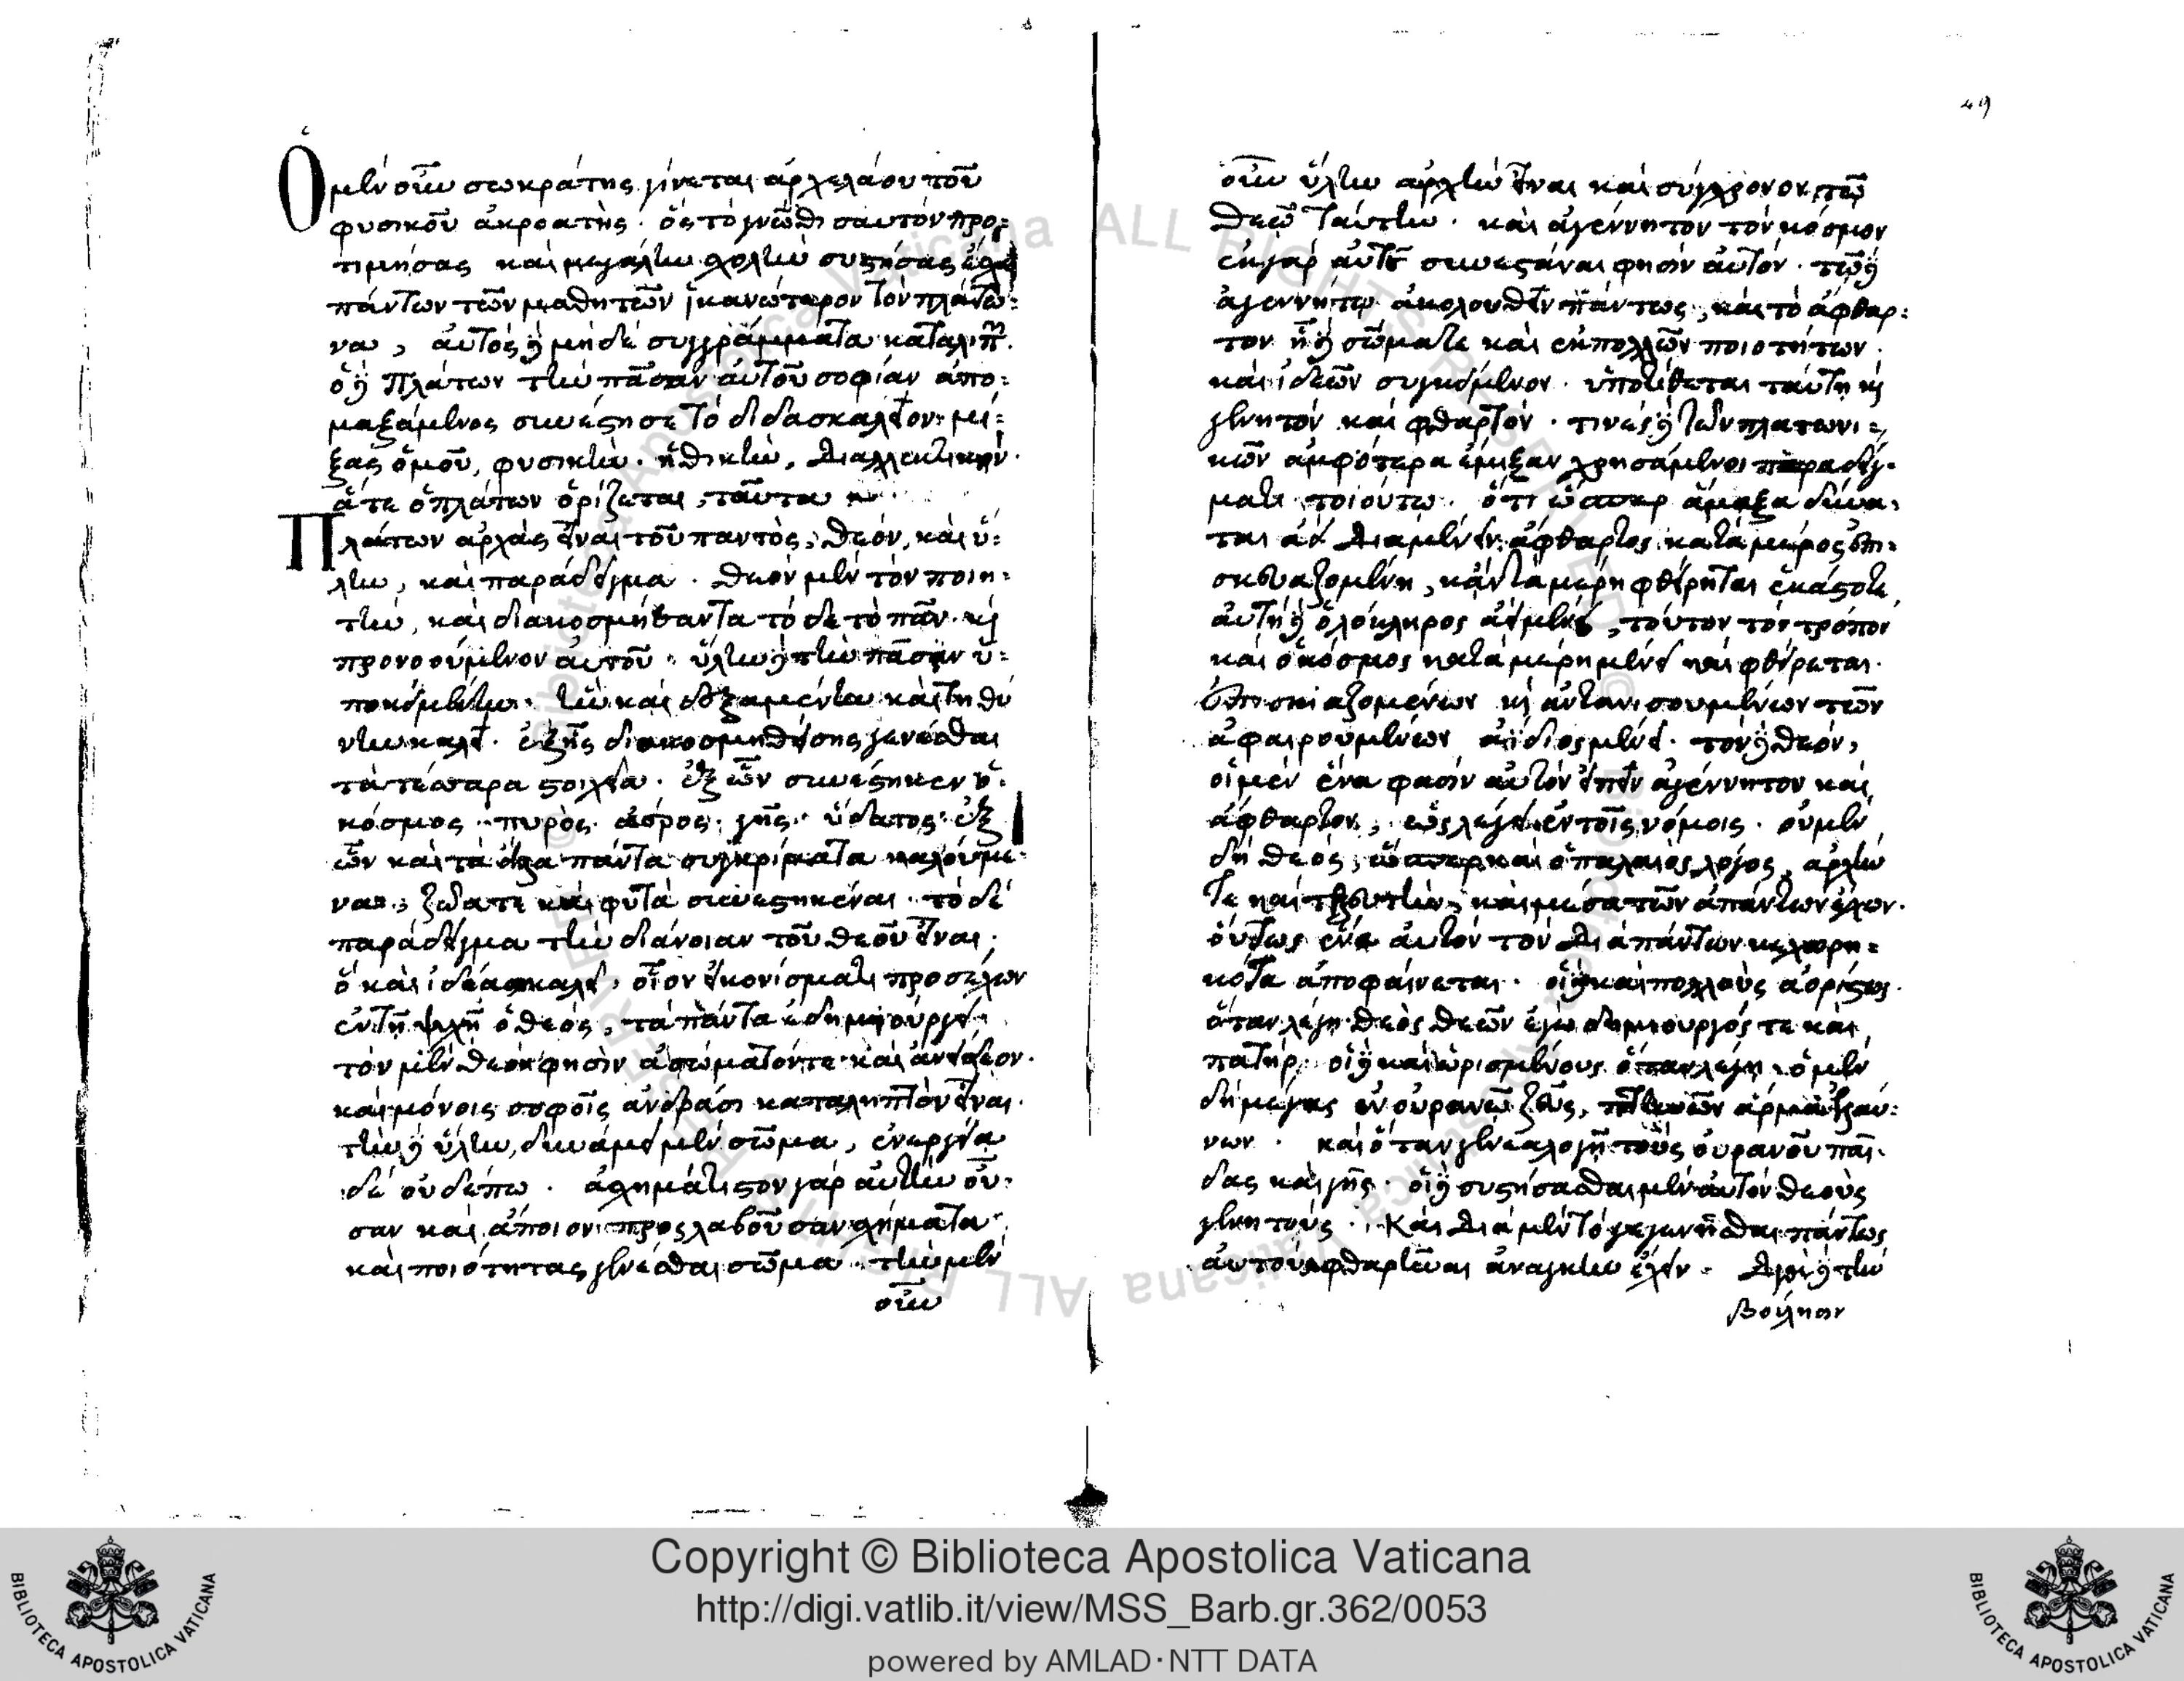 49
Ὁ μὲν οὖν σωκράτης γίνεται ἀρχελάου τοῦ
φυσικοῦ ἀκροατὴς· ὃς τὸ γνῶθι σαυτὸν προ-
τιμήσας καὶ μεγάλην σχολὴν συστήσας ἔσχε
πάντων τῶν μαθητῶν ἱκανώτερον τὸν πλάτω-
να, αὐτὸς δὲ μηδὲ συγγράμματα καταλιπ
ὁ δὲ Πλάτων τὴν πᾶσαν αὐτοῦ σοφίαν ἀπο-
μαξάμενος συνέστησε τὸ διδασκαλεῖον· μί-
ξας ὁμοῦ, φυσικὴν· ἠθικὴν, διαλλεκτικήν·
ἅ τε ὁ πλάτων ὁρίζεται, ταῦτα
Πλάτων ἀρχὰς εἶναι τοῦ παντὸς, θεὸν, καὶ ὕ-
λην, καὶ παράδειγμα· θεὸν μὲν τὸν ποιη-
τὴν, καὶ διακοσμήσαντα τόδε τὸ πᾶν· καὶ
προνοούμενον αὐτοῦ· ὕλην δὲ τὴν πᾶσιν ὑ-
ποκειμένην· ἣν καὶ δεξαμένην καὶ τιθή
νην καλεῖ· ἐξ ἧς διακοσμηθείσης γενέσθαι
τὰ τέσσαρα στοιχεῖα· ἐξ ὧν συνέστηκεν ὁ
κόσμος· πυρὸς· ἀέρος· γῆς· ὕδατος· ἐξ
ὧν καὶ τὰ ἄλλα πάντα συγκρίματα καλούμε-
να, ζῶά τε καὶ φυτὰ συνεστηκέναι· τὸ δὲ
παράδειγμα τὴν διάνοιαν τοῦ θεοῦ εἶναι·
ὃ καὶ ἰδέας καλεῖ, οἷον εἰκονίσματι προσέχων
ἐν τῇ ψυχῇ ὁ θεὸς, τὰ πάντα ἐδημιούργει·
τὸν μὲν θεὸν φησὶν ἀσώματόν τε καὶ ἀνείδεον·
καὶ μόνοις σοφοῖς ἀνδράσι καταληπτὸν εἶναι·
τὴν δὲ ὕλην, δυνάμει μὲν σῶμα, ἐνεργείᾳ
δὲ οὐδέπω· ἀσχημάτιστον γὰρ αὐτὴν οὖ-
σαν καὶ ἄποιον προσλαβοῦσαν σχήματα
καὶ ποιότητας γενέσθαι σῶμα· τὴν μὲν
οὖν
οὖν ὕλην ἀρχὴν εἶναι καὶ σύγχρονον τῷ
θεῷ ταύτην· καὶ ἀγέννητον τὸν κόσμον
ἐκ γὰρ αὐτῆς συνεστάναι φησὶν αὐτὸν· τῷ δὲ
ἀγεννήτῳ ἀκολουθεῖν πάντως, καὶ τὸ ἄφθαρ-
τον ᾗ δὲ σῶμά τε καὶ ἐκ πολλῶν ποιοτήτων
καὶ ἰδεῶν συγκείμενον· ὑποτίθεται ταύτῃ καὶ
γενητὸν καὶ φθαρτόν· τινὲς δὲ τῶν πλατωνι-
κῶν ἀμφότερα ἔμιξαν χρησάμενοι παραδείγ-
ματι τοιούτῳ· ὅτι ὥσπερ ἅμαξα δύνα-
ται ἀεὶ διαμένειν ἄφθαρτος κατὰ μέρος ἐπι-
σκευαζομένη, κἂν τὰ μέρη φθείρηται ἑκάστοτε
αὐτὴ δὲ ὁλόκληρος ἀεὶ μένει, τοῦτον τὸν τρόπον
καὶ ὁ κόσμος κατὰ μέρη μὲν εἰ καὶ φθείρεται·
ἐπισκιαζομένων καὶ ἀντανισουμένων τῶν
ἀφαιρουμένων ἀΐδιος μένει· τὸν δὲ θεὸν,
οἱ μὲν ἕνα φασὶν αὐτὸν εἰπεῖν ἀγέννητον καὶ
ἄφθαρτον, ὡς λέγει ἐν τοῖς νόμοις· ὁ μὲν
δὴ θεὸς, ὥσπερ καὶ ὁ παλαιὸς λόγος, ἀρχήν
τε καὶ τελευτὴν, καὶ μέσα τῶν ἁπάντων ἔχων·
οὕτως ἕνα αὐτὸν τὸν διὰ πάντων κεχωρη-
κότα ἀποφαίνεται· οἱ δὲ καὶ πολλοὺς ἀορίστως·
ὅταν λέγῃ θεὸς θεῶν ἐγὼ δημιουργός τε καὶ
πατήρ· οἱ δὲ καὶ ὡρισμένους ὅταν λέγῃ· ὁ μὲν
δὴ μέγας ἐν οὐρανῷ ζεῦς, πτηνῶν ἅρμα ἐλαύ-
νων· καὶ ὅταν γενεαλογῇ τοὺς οὐρανοῦ παῖ-
δας καὶ γῆς· οἱ δὲ συστήσασθαι μὲν αὐτὸν θεοὺς
γενητοὺς· Καὶ διὰ μὲν τὸ γεγενῆσθαι πάντως
αὐτοὺς φθαρῆναι ἀνάγκην ἔχειν· Διὰ δὲ τὴν
βούλησιν
Copyright © Biblioteca Apostolica Vaticana
http://digi.vatlib.it/view/MSS_Barb.gr.362/0053
powered by AMLAD·NTT DATA
BIBLIOTECA APOSTOLICA VATICANA
BIBLIOTECA APOSTOLICA VATICANA